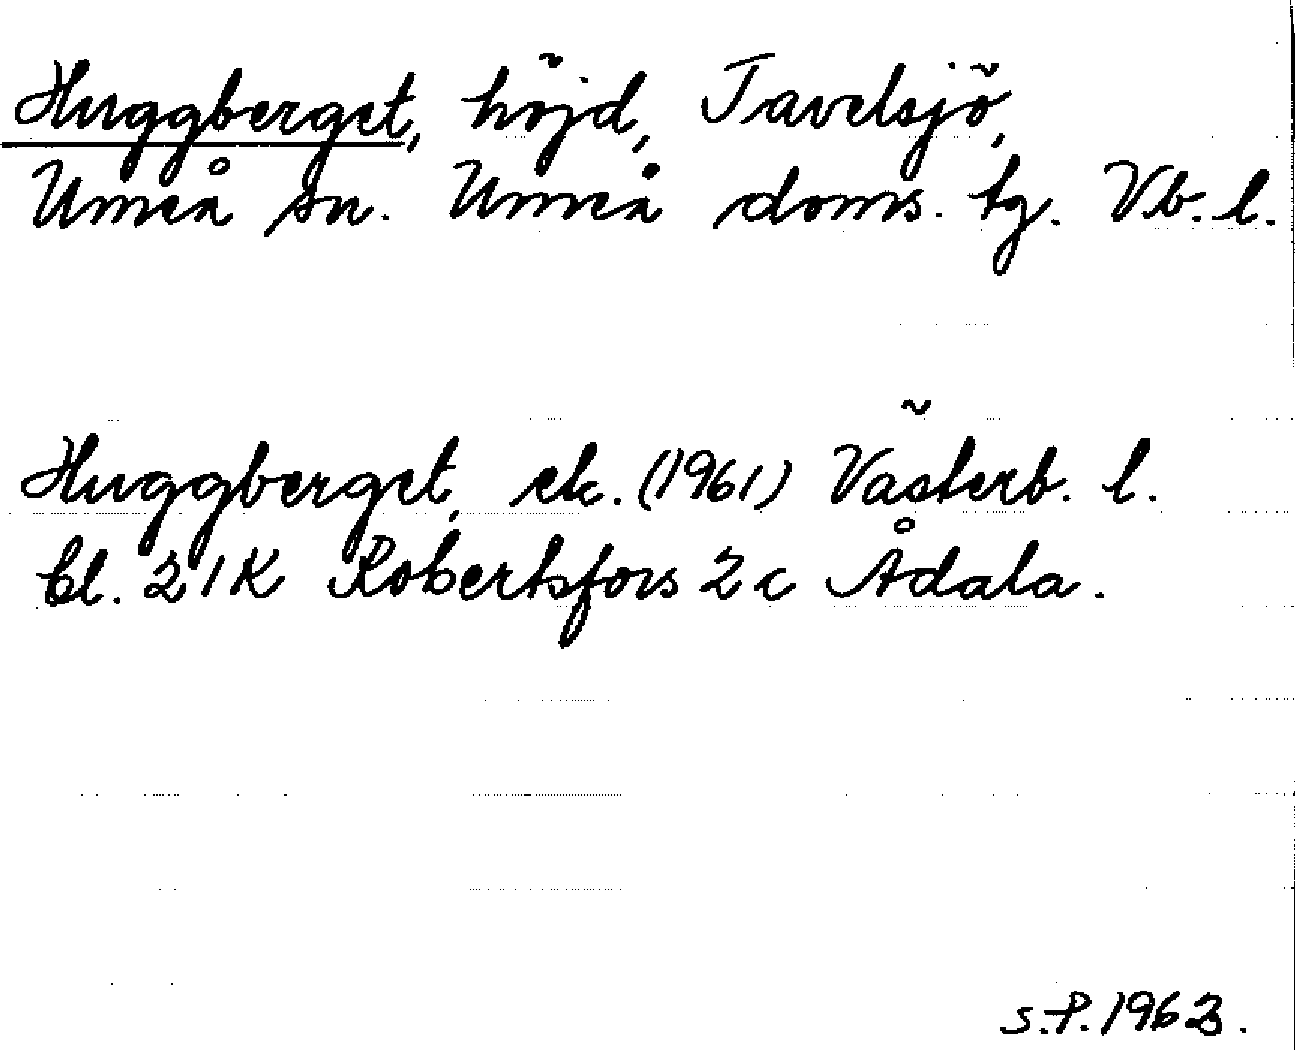 Huggberget, höjd, Tavelsjö,
Umeå sn. Umeå doms. tg. Vb. l.
Huggberget, ek. (1961) Västerb. l.
bl. 21K Robertsfors 2c Ådala.
S.P. 1963.